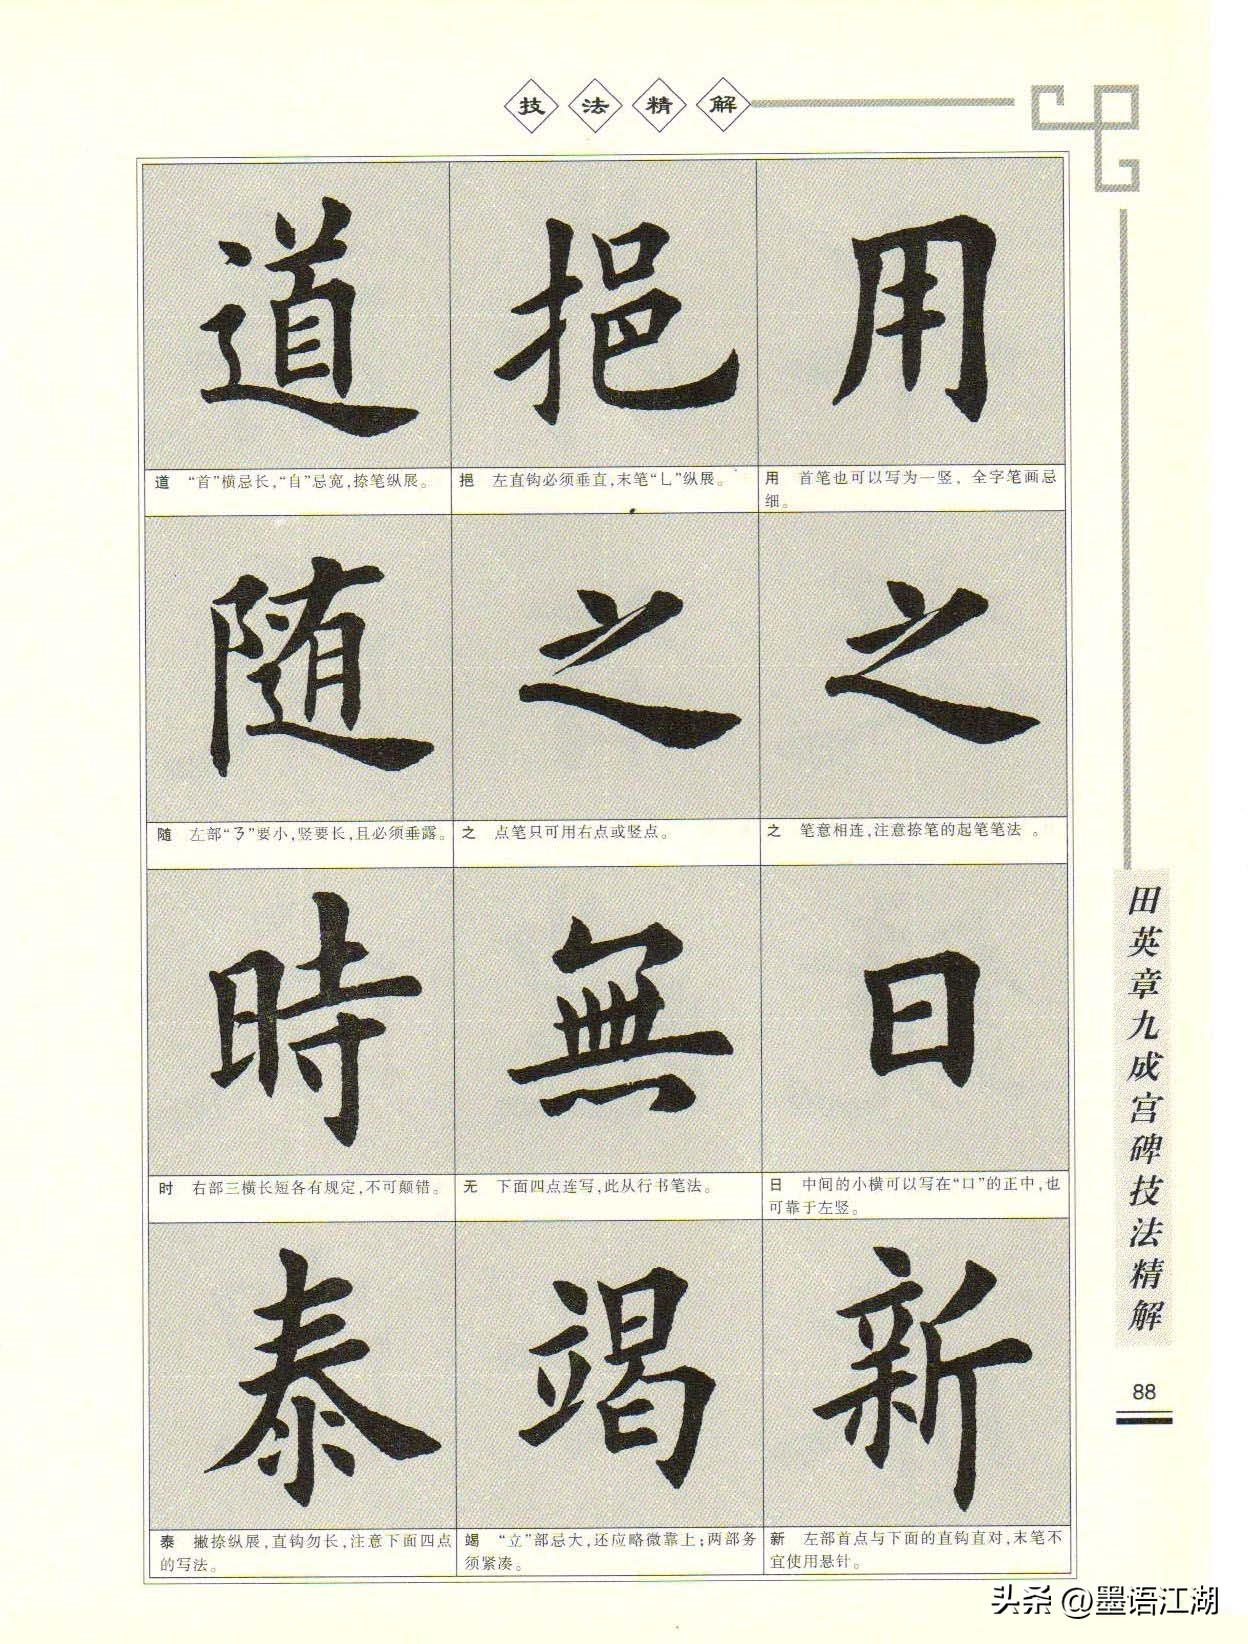 技法精解
道 挹 用
道 “首”横忌长,“自”忌宽,捺笔纵展。
挹 左直钩必须垂直,末笔“乚”纵展。
用 首笔也可以写为一竖，全字笔画忌
细。
随 之 之
随 左部“阝”要小,竖要长,且必须垂露。
之 点笔只可用右点或竖点。
之 笔意相连,注意捺笔的起笔笔法 。
時 無 日
时 右部三横长短各有规定,不可颠错。
无 下面四点连写,此从行书笔法。
日 中间的小横可以写在“口”的正中,也
可靠于左竖。
泰 竭 新
泰 撇捺纵展,直钩勿长,注意下面四点
的写法。
竭 “立”部忌大,还应略微靠上;两部务
须紧凑。
新 左部首点与下面的直钩直对,末笔不
宜使用悬针。
田英章九成宫碑技法精解
88
头条 @墨语江湖